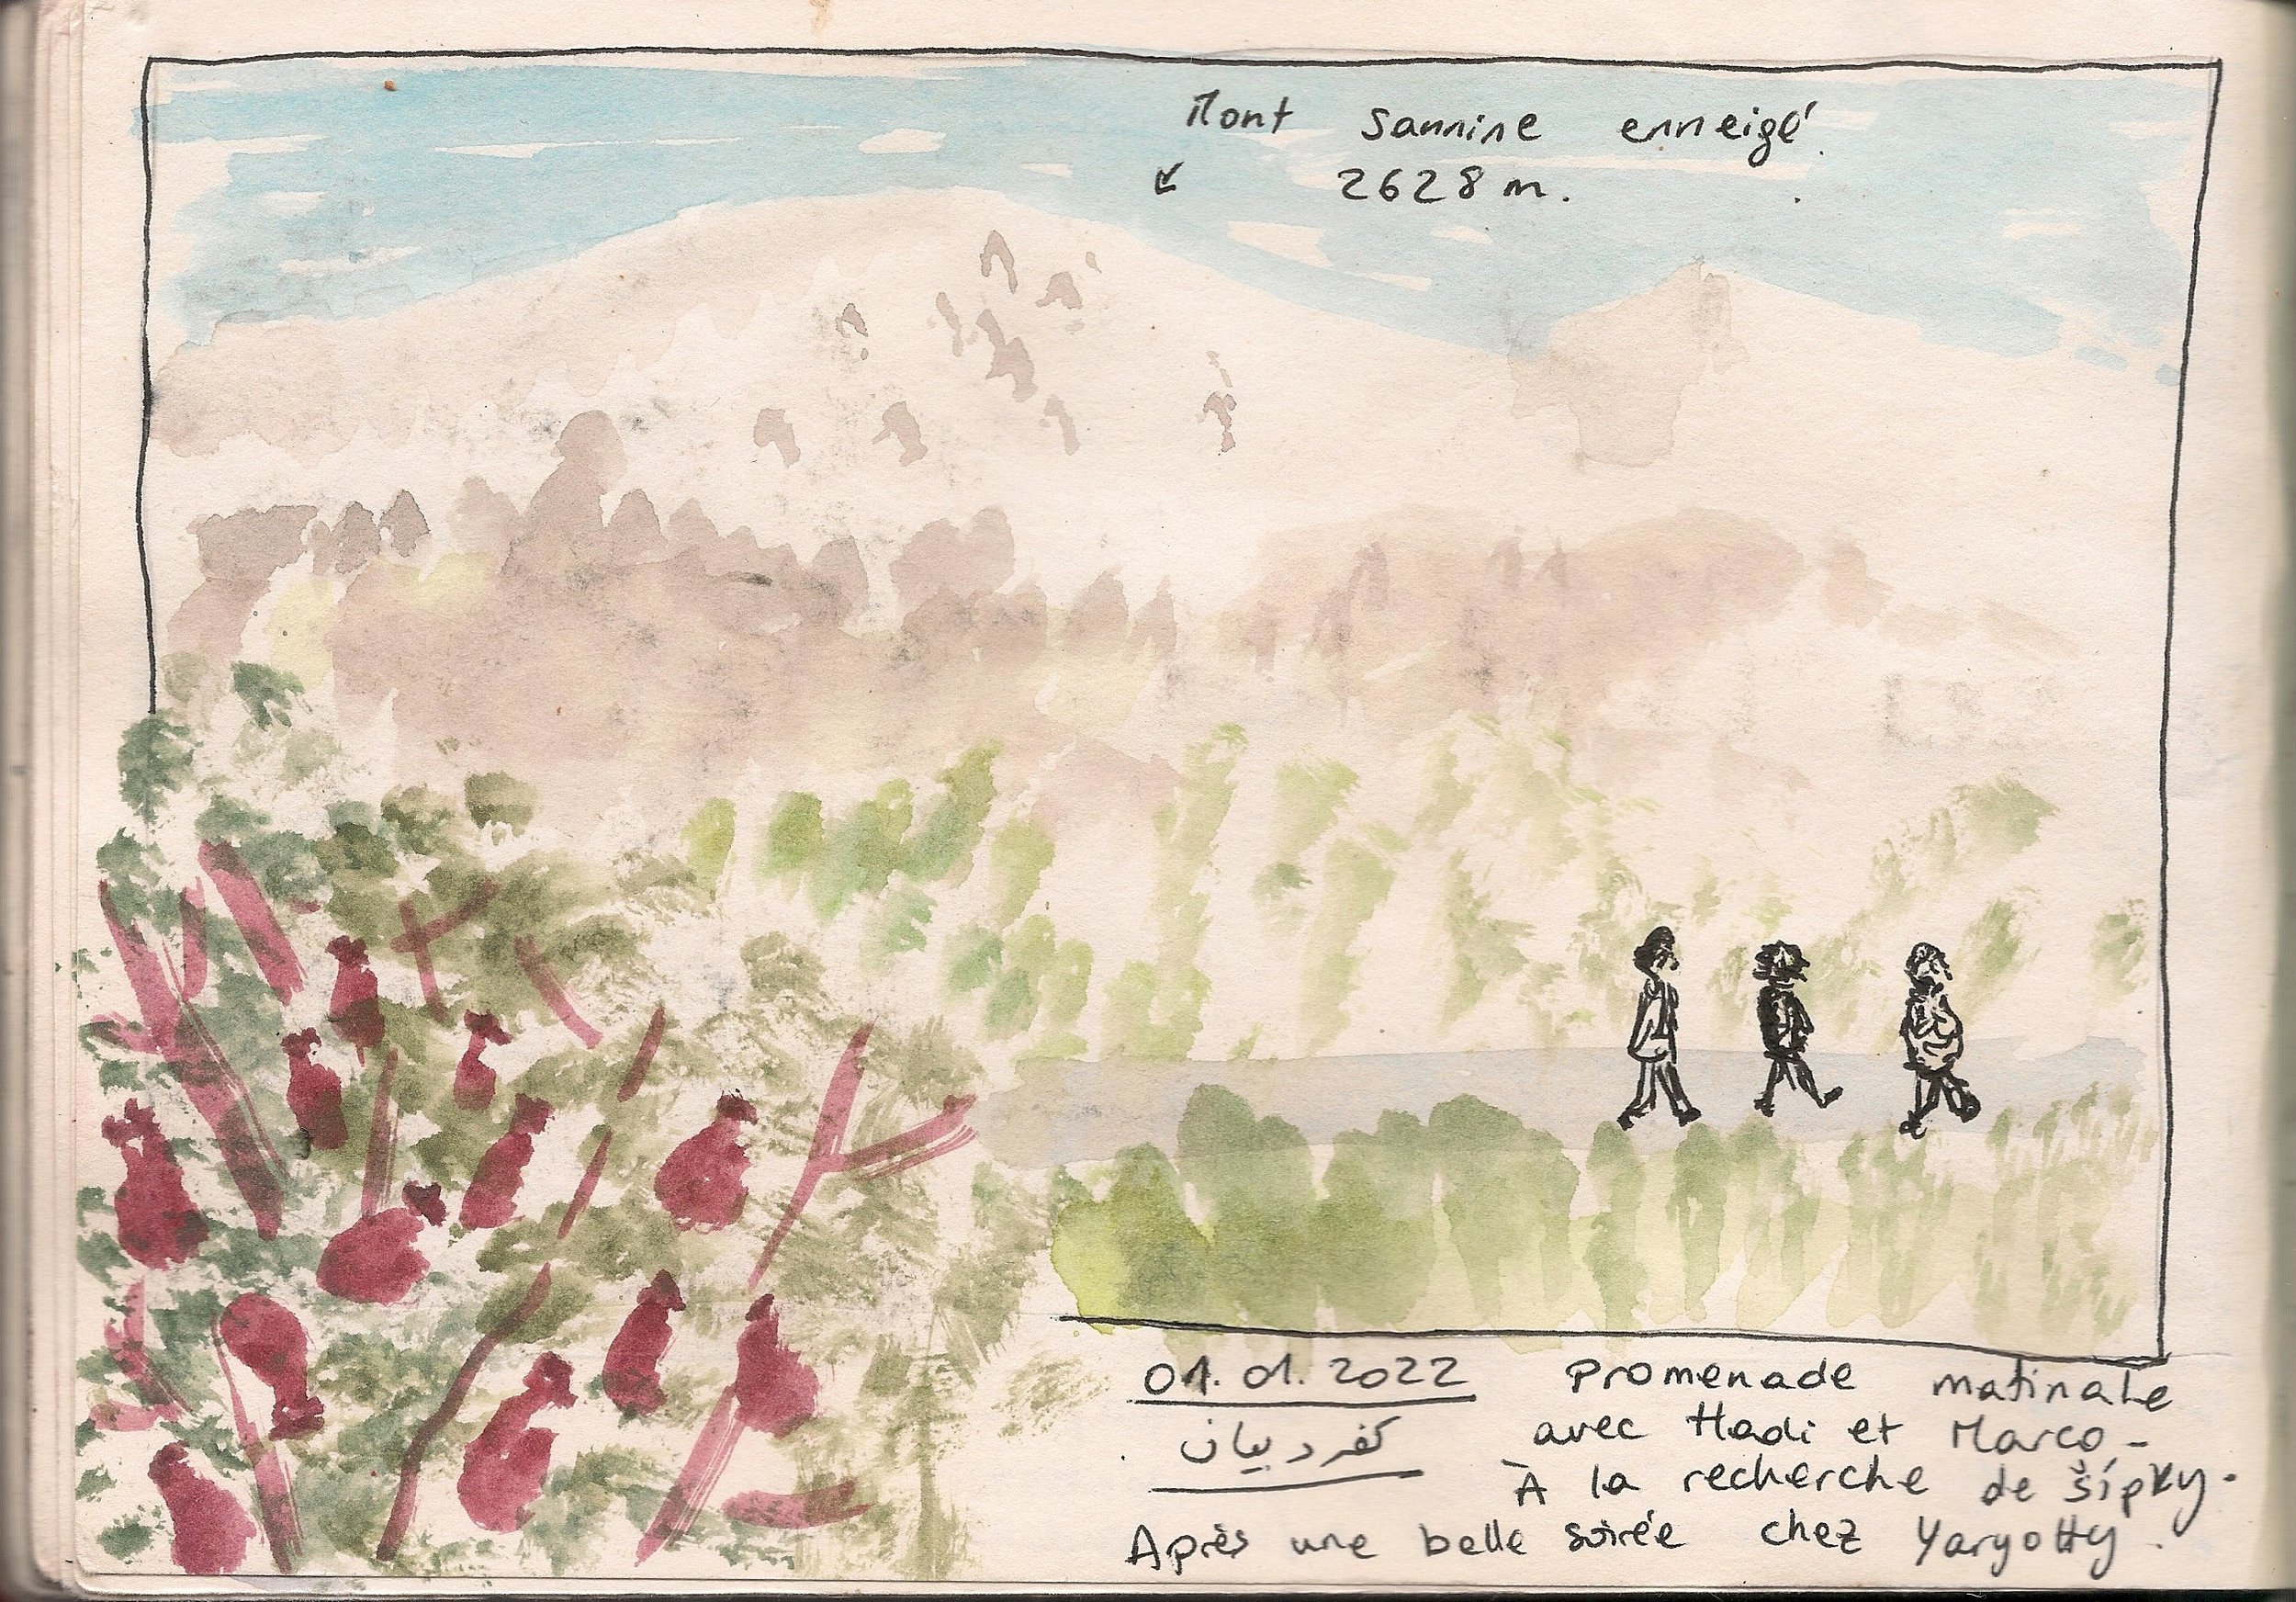 Mont Sannine enneigé.
2628 m.
01.01.2022 Promenade matinale
كفردبيان avec Hadi et Marco -
À la recherche de šípky.
Après une belle soirée chez Yaryotty.